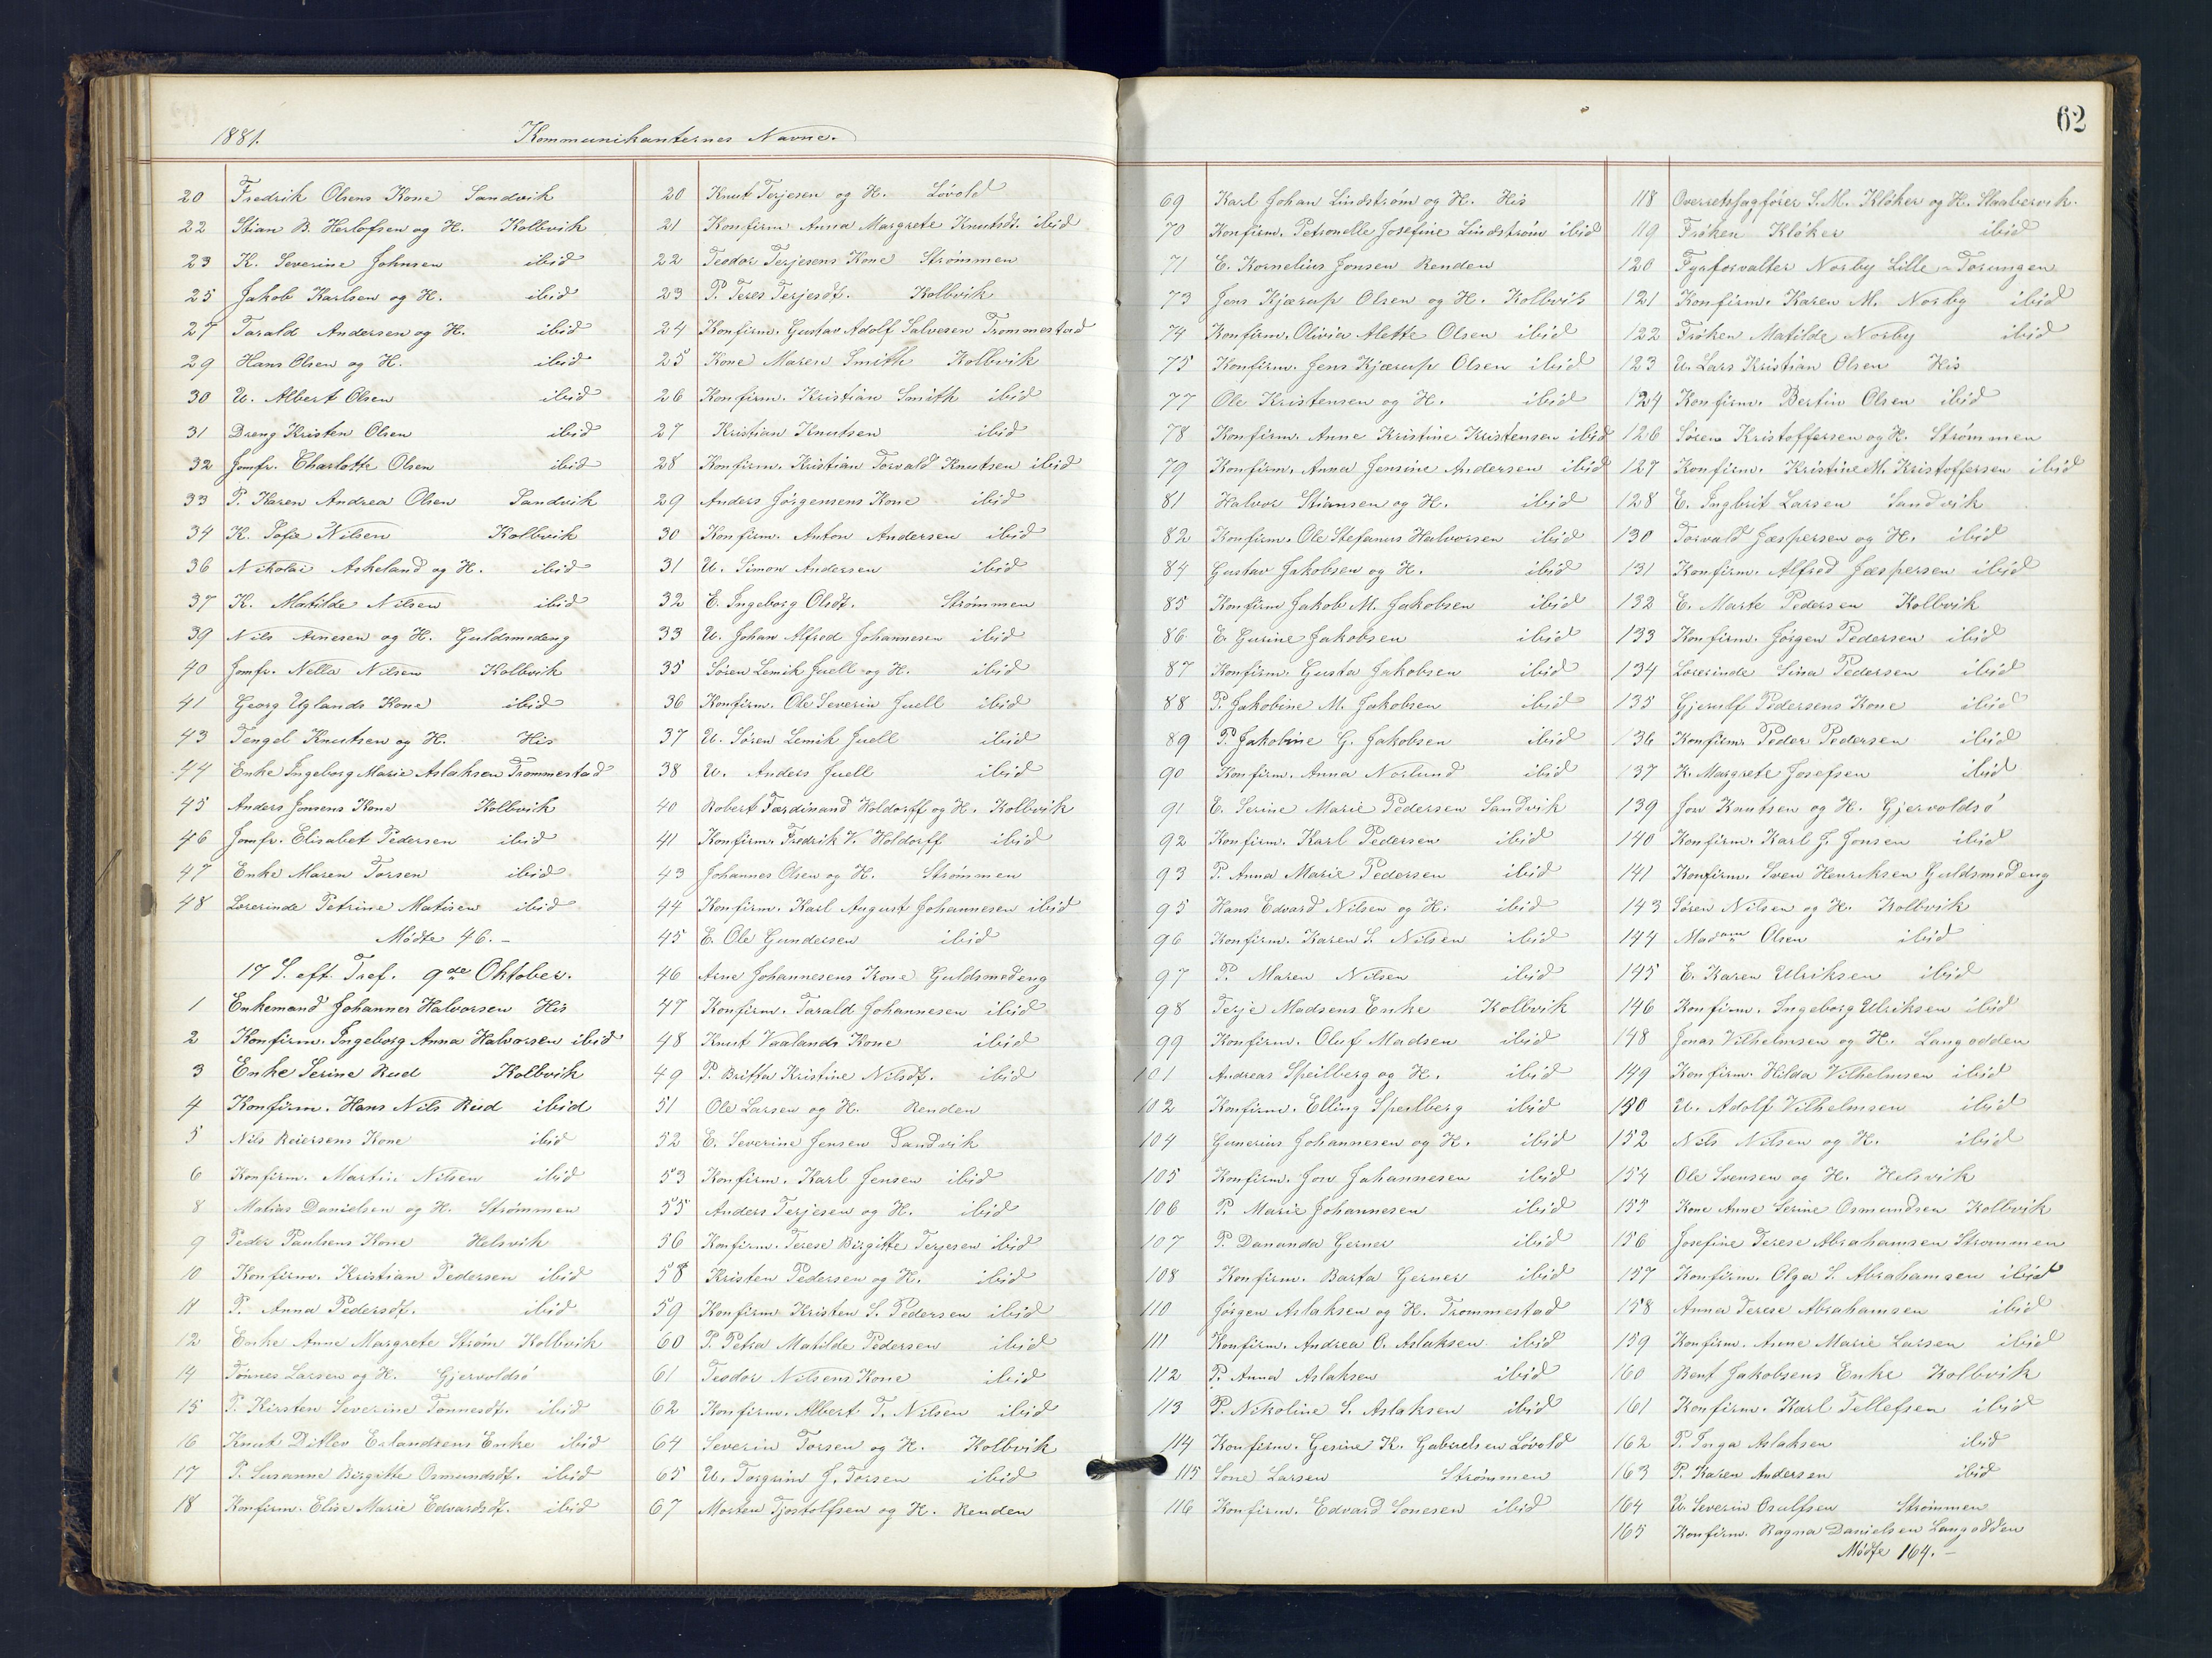 1881.
Kommunikanternes Navne.
20 Fredrik Olsens Kone Sandvik
22 Stian B. Herlofsen og H. Kolbvik
23 K. Severine Johnsen ibid
25 Jakob Karlsen og H. ibid
27 Tarald Andersen og H. ibid
29 Hans Olsen og H. ibid
30 U. Albert Olsen ibid
31 Dreng Kristen Olsen ibid
32 Jomfr. Charlotte Olsen ibid
33 P. Karen Andrea Olsen Sandvik
34 K. Sofie Nilsen Kolbvik
36 Nikolai Askeland og H. ibid
37 K. Matilde Nilsen ibid
39 Nils Arnesen og H. Guldsmedeng
40 Jomfr. Nella Nilsen Kolbvik
41 Georg Uglands Kone ibid
43 Tengel Knutsen og H. His
44 Enke Ingeborg Marie Aslaksen Trommestad
45 Anders Jonsens Kone Kolbvik
46 Jomfr. Elisabet Pedersen ibid
47 Enke Maren Torsen ibid
48 Lærerinde Petrine Matisen ibid
Mødte 46.-
17 S. eft. Tref. 9de Oktober.
1 Enkemand Johannes Halvorsen His
2 Konfirm. Ingeborg Anna Halvorsen ibid
3 Enke Serine Rud Kolbvik
4 Konfirm. Hans Nils Rud ibid
5 Nils Reiersens Kone ibid
6 Konfirm. Martin Nilsen ibid
8 Matias Danielsen og H. Strømmen
9 Peder Paulsens Kone Helsvik
10 Konfirm. Kristian Pedersen ibid
11 P. Anna Pedersdt. ibid
12 Enke Anne Margrete Strøm Kolbvik
14 Tønnes Larsen og H. Gjervoldsø
15 P. Kirsten Severine Tønnesdt. ibid
16 Knut Ditlev Erlandsens Enke ibid
17 P. Susanne Birgitte Osmundsdt. ibid
18 Konfirm. Elise Marie Edvardsdt. ibid
20 Knut Terjesen og H. Løvold
21 Konfirm Anna Margrete Knutsdt. ibid
22 Teodor Terjesens Kone Strømmen
23 P. Teres Terjesdt. Kolbvik
24 Konfirm. Gustav Adolf Salvesen Trommestad
25 Kone Maren Smith Kolbvik
26 Konfirm. Kristian Smith ibid
27 Kristian Knutsen ibid
28 Konfirm. Kristian Torvald Knutsen ibid
29 Anders Jørgensens Kone ibid
30 Konfirm. Anton Andersen ibid
31 U. Simon Andersen ibid
32 E. Ingeborg Olsdt. Strømmen
33 U. Johan Alfred Johannesen ibid
35 Søren Lemik Juell og H. ibid
36 Konfirm. Ole Severin Juell ibid
37 U. Søren Lemik Juell ibid
38 U. Anders Juell ibid
40 Robert Færdinand Holdorff og H. Kolbvik
41 Konfirm. Fredrik V. Holdorff ibid
43 Johannes Olsen og H. Strømmen
44 Konfirm. Karl August Johannesen ibid
45 E. Ole Gundersen ibid
46 Arne Johannesens Kone Guldsmedeng
47 Konfirm. Tarald Johannesen ibid
48 Knut Vaalands Kone ibid
49 P. Britta Kristine Nilsdt. ibid
51 Ole Larsen og H. Renden
52 E. Severine Jensen Sandvik
53 Konfirm. Karl Jensen ibid
55 Anders Terjesen og H. ibid
56 Konfirm. Terese Birgitte Terjesen ibid
58 Kristen Pedersen og H. ibid
59 Konfirm Kristen S. Pedersen ibid
60 P. Petra Matilde Pedersen ibid
61 Teodor Nilsens Kone ibid
62 Konfirm. Albert T. Nilsen ibid
64 Severin Torsen og H. Kolbvik
65 U. Torgrim J. Torsen ibid
67 Morten Tjostolfsen og H. Renden
62
69 Karl Johan Lindstrøm og H. His
70 Konfirm. Petronelle Josefine Lindstrøm ibid
71 E. Kornelius Jonsen Renden
73 Jens Kjærup Olsen og H. Kolbvik
74 Konfirm. Olivia Alette Olsen ibid
75 Konfirm. Jens Kjærup Olsen ibid
77 Ole Kristensen og H. ibid
78 Konfirm. Anne Kristine Kristensen ibid
79 Konfirm. Anna Jensine Andersen ibid
81 Halvor Stiansen og H. ibid
82 Konfirm. Ole Stefanus Halvorsen ibid
84 Gustav Jakobsen og H. ibid
85 Konfirm Jakob M. Jakobsen ibid
86 E. Gurine Jakobsen ibid
87 Konfirm. Gusta Jakobsen ibid
88 P. Jakobine M. Jakobsen ibid
89 P. Jakobine G. Jakobsen ibid
90 Konfirm. Anna Norlund ibid
91 E. Serine Marie Pedersen Sandvik
92 Konfirm. Karl Pedersen ibid
93 P. Anna Marie Pedersen ibid
95 Hans Edvard Nilsen og H. ibid
96 Konfirm. Karen S. Nilsen ibid
97 P. Maren Nilsen ibid
98 Terje Madsens Enke Kolbvik
99 Konfirm. Oluf Madsen ibid
101 Andreas Speilberg og H. ibid
102 Konfirm. Elling Speilberg ibid
104 Gunerius Johannesen og H. ibid
105 Konfirm. Jon Johannesen ibid
106 P. Marie Johannesen ibid
107 P. Dananda Gerner ibid
108 Konfirm. Barta Gerner ibid
110 Jørgen Aslaksen og H. Trommestad
111 Konfirm. Andrea O. Aslaksen ibid
112 P. Anna Aslaksen ibid
113 P. Nikoline S. Aslaksen ibid
114 Konfirm. Gesine K. Gabrielsen Løvold
115 Sone Larsen Strømmen
116 Konfirm. Edvard Sonesen ibid
118 Overretssagfører S. M. Kløcker og H. Slaabervik.
119 Frøken Kløker ibid
120 Fyrforvalter Norby Lille-Torungen
121 Konfirm. Karen M. Norby ibid
122 Frøken Matilde Norby ibid
123 U. Lars Kristian Olsen His
124 Konfirm. Bertin Olsen ibid
126 Søren Kristoffersen og H. Strømmen
127 Konfirm. Kristine M. Kristoffersen ibid
128 E. Ingbrit Larsen Sandvik
130 Torvald Jæspersen og H. ibid
131 Konfirm. Alfred Jæspersen ibid
132 E. Marte Pedersen Kolbvik
133 Konfirm. Jørgen Pedersen ibid
134 Lærerinde Sina Pedersen ibid
135 Gjerulf Pedersens Kone ibid
136 Konfirm. Peder Pedersen ibid
137 K. Margrete Josefsen ibid
139 Jon Knutsen og H. Gjervoldsø
140 Konfirm. Karl J. Jonsen ibid
141 Konfirm. Sven Henriksen Guldsmedeng
143 Søren Nilsen og H. Kolbvik
144 Madam Olsen ibid
145 E. Karen Ulriksen ibid
146 Konfirm. Ingeborg Ulriksen ibid
148 Jonas Vilhelmsen og H. Langodden
149 Konfirm. Hilda Vilhelmsen ibid
150 U. Adolf Vilhelmsen ibid
152 Nils Nilsen og H. ibid
154 Ole Svensen og H. Helsvik
155 Kone Anne Serine Osmundsen Kolbvik
156 Josefine Terese Abrahamsen Strømmen
157 Konfirm. Olga S. Abrahamsen ibid
158 Anna Terese Abrahamsen ibid
159 Konfirm. Anne Marie Larsen ibid
160 Bent Jakobsens Enke Kolbvik
161 Konfirm. Karl Tellefsen ibid
162 P. Inga Aslaksen ibid
163 P. Karen Andersen ibid
164 U. Severin Osulfsen Strømmen
165 Konfirm. Ragna Danielsen Langodden
Mødte 164.-